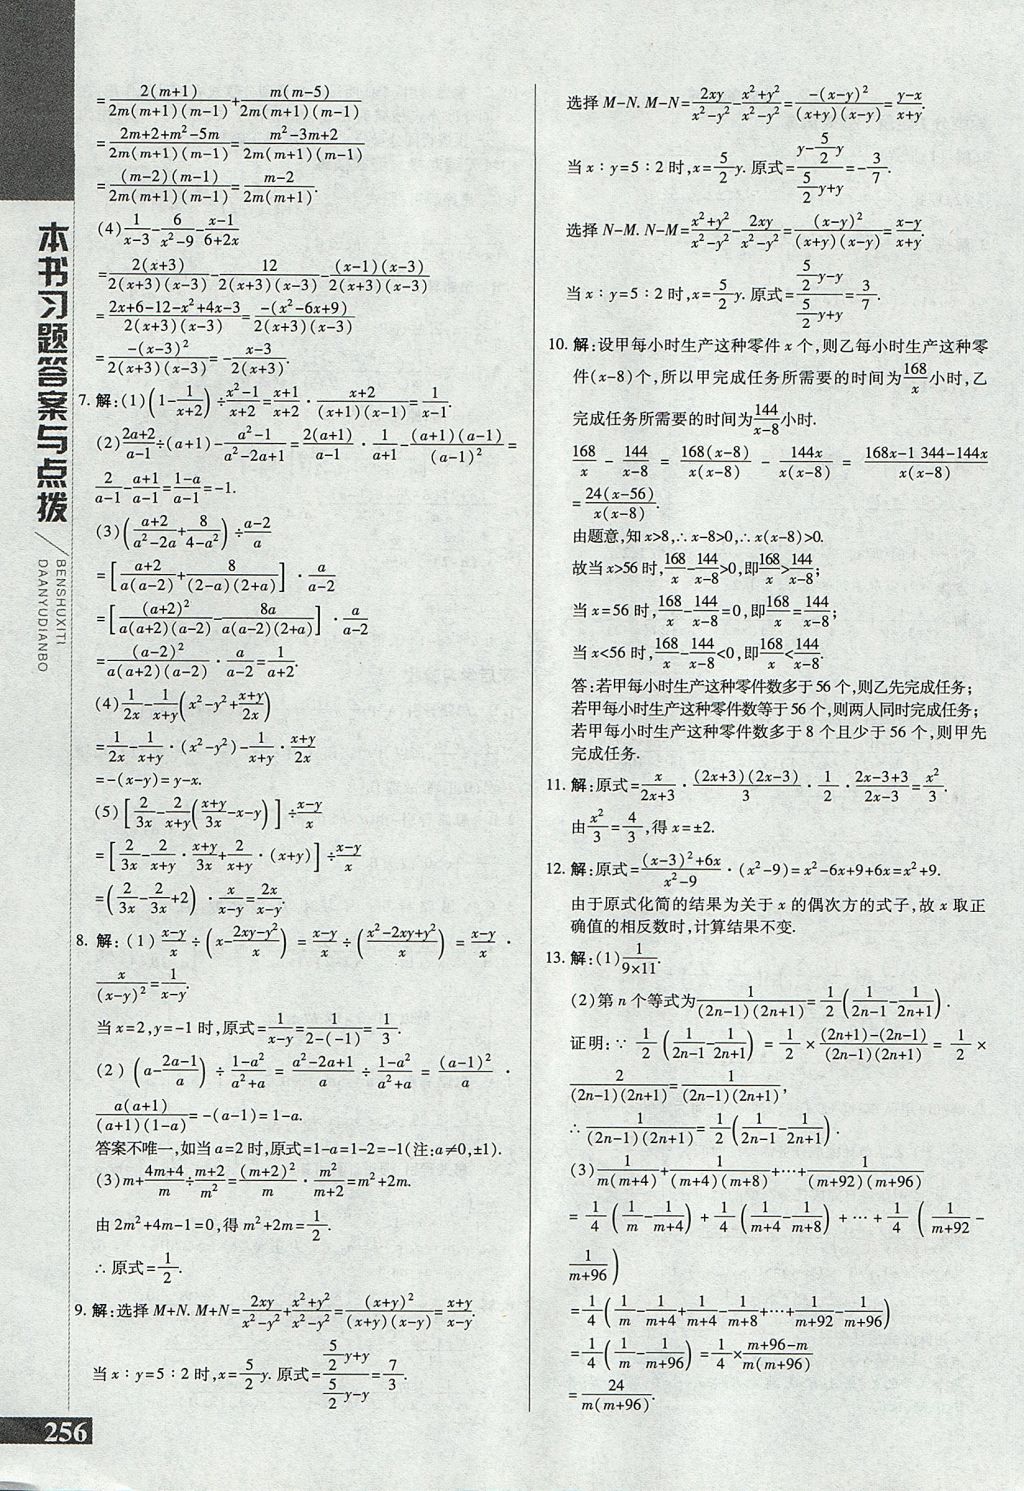 本书习题答案与点拨
BENSHUXITI
DAANYUDIANBO
=\frac{2(m+1)}{2m(m+1)(m-1)}+\frac{m(m-5)}{2m(m+1)(m-1)}
=\frac{2m+2+m²-5m}{2m(m+1)(m-1)}=\frac{m²-3m+2}{2m(m+1)(m-1)}
=\frac{(m-2)(m-1)}{2m(m+1)(m-1)}=\frac{m-2}{2m(m+1)}.
(4)\frac{1}{x-3}-\frac{6}{x²-9}-\frac{x-1}{6+2x}
=\frac{2(x+3)}{2(x+3)(x-3)}-\frac{12}{2(x+3)(x-3)}-\frac{(x-1)(x-3)}{2(x+3)(x-3)}
=\frac{2x+6-12-x²+4x-3}{2(x+3)(x-3)}=\frac{-(x²-6x+9)}{2(x+3)(x-3)}
=\frac{-(x-3)²}{2(x+3)(x-3)}=-\frac{x-3}{2(x+3)}.
7. 解:(1)(1-\frac{1}{x+2})÷\frac{x²-1}{x+2}=\frac{x+1}{x+2}·\frac{x+2}{(x+1)(x-1)}=\frac{1}{x-1}.
(2)\frac{2a+2}{a-1}÷(a+1)-\frac{a²-1}{a²-2a+1}=\frac{2(a+1)}{a-1}·\frac{1}{a+1}-\frac{(a+1)(a-1)}{(a-1)²}=
\frac{2}{a-1}-\frac{a+1}{a-1}=\frac{1-a}{a-1}=-1.
(3)(\frac{a+2}{a²-2a}+\frac{8}{4-a²})÷\frac{a-2}{a}
=[\frac{a+2}{a(a-2)}+\frac{8}{(2-a)(2+a)}]·\frac{a}{a-2}
=[\frac{(a+2)²}{a(a+2)(a-2)}-\frac{8a}{a(a-2)(2+a)}]·\frac{a}{a-2}
=\frac{(a-2)²}{a(a+2)(a-2)}·\frac{a}{a-2}=\frac{1}{a+2}.
(4)\frac{1}{2x}-\frac{1}{x+y}(x²-y²+\frac{x+y}{2x})
=\frac{1}{2x}-\frac{1}{x+y}·(x²-y²)-\frac{1}{x+y}·\frac{x+y}{2x}
=-(x-y)=y-x.
(5)[\frac{2}{3x}-\frac{2}{x+y}(\frac{x+y}{3x}-x-y)]÷\frac{x-y}{x}
=[\frac{2}{3x}-\frac{2}{x+y}·\frac{x+y}{3x}+\frac{2}{x+y}·(x+y)]÷\frac{x-y}{x}
=(\frac{2}{3x}-\frac{2}{3x}+2)·\frac{x}{x-y}=\frac{2x}{x-y}.
8. 解:(1)\frac{x-y}{x}÷(x-\frac{2xy-y²}{x})=\frac{x-y}{x}÷(\frac{x²-2xy+y²}{x})=\frac{x-y}{x}·
\frac{x}{(x-y)²}=\frac{1}{x-y}.
当x=2,y=-1时,原式=\frac{1}{x-y}=\frac{1}{2-(-1)}=\frac{1}{3}.
(2)(a-\frac{2a-1}{a})÷\frac{1-a²}{a²+a}=\frac{a²-2a+1}{a}÷\frac{1-a²}{a²+a}=\frac{(a-1)²}{a}·
\frac{a(a+1)}{(a+1)(1-a)}=-(a-1)=1-a.
答案不唯一,如当a=2时,原式=1-a=1-2=-1(注:a≠0,±1).
(3)m+\frac{4m+4}{m}÷\frac{m+2}{m²}=\frac{(m+2)²}{m}·\frac{m²}{m+2}=m²+2m.
由2m²+4m-1=0,得m²+2m=\frac{1}{2}.
∴原式=\frac{1}{2}.
9. 解:选择M+N. M+N=\frac{2xy}{x²-y²}+\frac{x²+y²}{x²-y²}=\frac{(x+y)²}{(x+y)(x-y)}=\frac{x+y}{x-y}.
当x∶y=5∶2时,x=\frac{5}{2}y. 原式=\frac{\frac{5}{2}y+y}{\frac{5}{2}y-y}=\frac{7}{3}.
256
选择M-N. M-N=\frac{2xy}{x²-y²}-\frac{x²+y²}{x²-y²}=\frac{-(x-y)²}{(x+y)(x-y)}=\frac{y-x}{x+y}.
当x∶y=5∶2时,x=\frac{5}{2}y. 原式=\frac{y-\frac{5}{2}y}{\frac{5}{2}y+y}=-\frac{3}{7}.
选择N-M. N-M=\frac{x²+y²}{x²-y²}-\frac{2xy}{x²-y²}=\frac{(x-y)²}{(x+y)(x-y)}=\frac{x-y}{x+y}.
当x∶y=5∶2时,x=\frac{5}{2}y. 原式=\frac{\frac{5}{2}y-y}{\frac{5}{2}y+y}=\frac{3}{7}.
10. 解:设甲每小时生产这种零件x个,则乙每小时生产这种零
件(x-8)个,所以甲完成任务所需要的时间为\frac{168}{x}小时,乙
完成任务所需要的时间为\frac{144}{x-8}小时.
\frac{168}{x}-\frac{144}{x-8}=\frac{168(x-8)}{x(x-8)}-\frac{144x}{x(x-8)}=\frac{168x-1 344-144x}{x(x-8)}
=\frac{24(x-56)}{x(x-8)}.
由题意,知x>8,∴x-8>0,∴x(x-8)>0.
故当x>56时,\frac{168}{x}-\frac{144}{x-8}>0,即\frac{168}{x}>\frac{144}{x-8};
当x=56时,\frac{168}{x}-\frac{144}{x-8}=0,即\frac{168}{x}=\frac{144}{x-8};
当x<56时,\frac{168}{x}-\frac{144}{x-8}<0,即\frac{168}{x}<\frac{144}{x-8}.
答:若甲每小时生产这种零件数多于56个,则乙先完成任务;
若甲每小时生产这种零件数等于56个,则两人同时完成任务;
若甲每小时生产这种零件数多于8个且少于56个,则甲先
完成任务.
11. 解:原式=\frac{x}{2x+3}·\frac{(2x+3)(2x-3)}{3}·\frac{1}{2}·\frac{2x-3+3}{2x-3}=\frac{x²}{3}.
由\frac{x²}{3}=\frac{4}{3},得x=±2.
12. 解:原式=\frac{(x-3)²+6x}{x²-9}·(x²-9)=x²-6x+9+6x=x²+9.
由于原式化简的结果为关于x的偶次方的式子,故x取正
确值的相反数时,计算结果不变.
13. 解:(1)\frac{1}{9×11}.
(2)第n个等式为\frac{1}{(2n-1)(2n+1)}=\frac{1}{2}(\frac{1}{2n-1}-\frac{1}{2n+1}).
证明:∵\frac{1}{2}(\frac{1}{2n-1}-\frac{1}{2n+1})=\frac{1}{2}×\frac{(2n+1)-(2n-1)}{(2n-1)(2n+1)}=\frac{1}{2}×
\frac{2}{(2n-1)(2n+1)}=\frac{1}{(2n-1)(2n+1)},
∴\frac{1}{(2n-1)(2n+1)}=\frac{1}{2}(\frac{1}{2n-1}-\frac{1}{2n+1}).
(3)\frac{1}{m(m+4)}+\frac{1}{(m+4)(m+8)}+…+\frac{1}{(m+92)(m+96)}
=\frac{1}{4}(\frac{1}{m}-\frac{1}{m+4})+\frac{1}{4}(\frac{1}{m+4}-\frac{1}{m+8})+…+\frac{1}{4}(\frac{1}{m+92}-
\frac{1}{m+96})
=\frac{1}{4}(\frac{1}{m}-\frac{1}{m+4}+\frac{1}{m+4}-\frac{1}{m+8}+…+\frac{1}{m+92}-\frac{1}{m+96})
=\frac{1}{4}(\frac{1}{m}-\frac{1}{m+96})=\frac{1}{4}×\frac{m+96-m}{m(m+96)}
=\frac{24}{m(m+96)}.